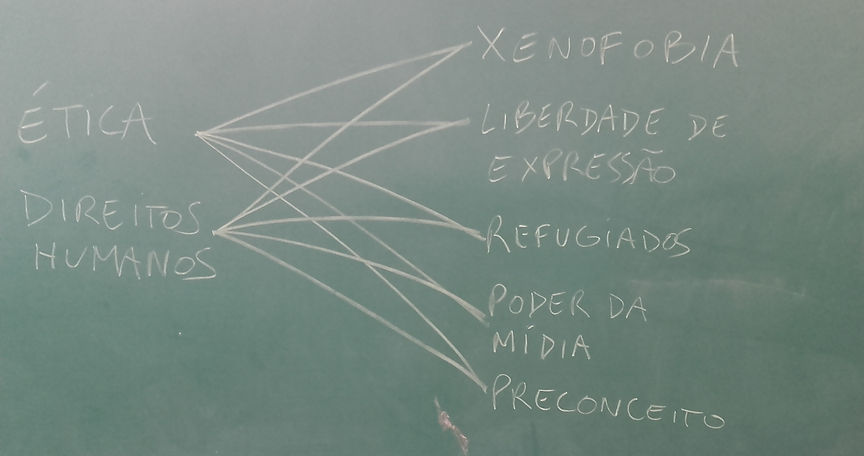 ÉTICA
DIREITOS
HUMANOS
XENOFOBIA
LIBERDADE DE
EXPRESSÃO
REFUGIADOS
PODER DA
MÍDIA
PRECONCEITO